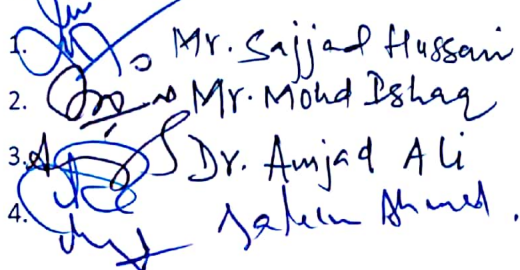 1. Mr. Sajjad Hussain
2. Mr. Mohd Ishaq
3. Dr. Amjad Ali
4. Saleem Ahmed.